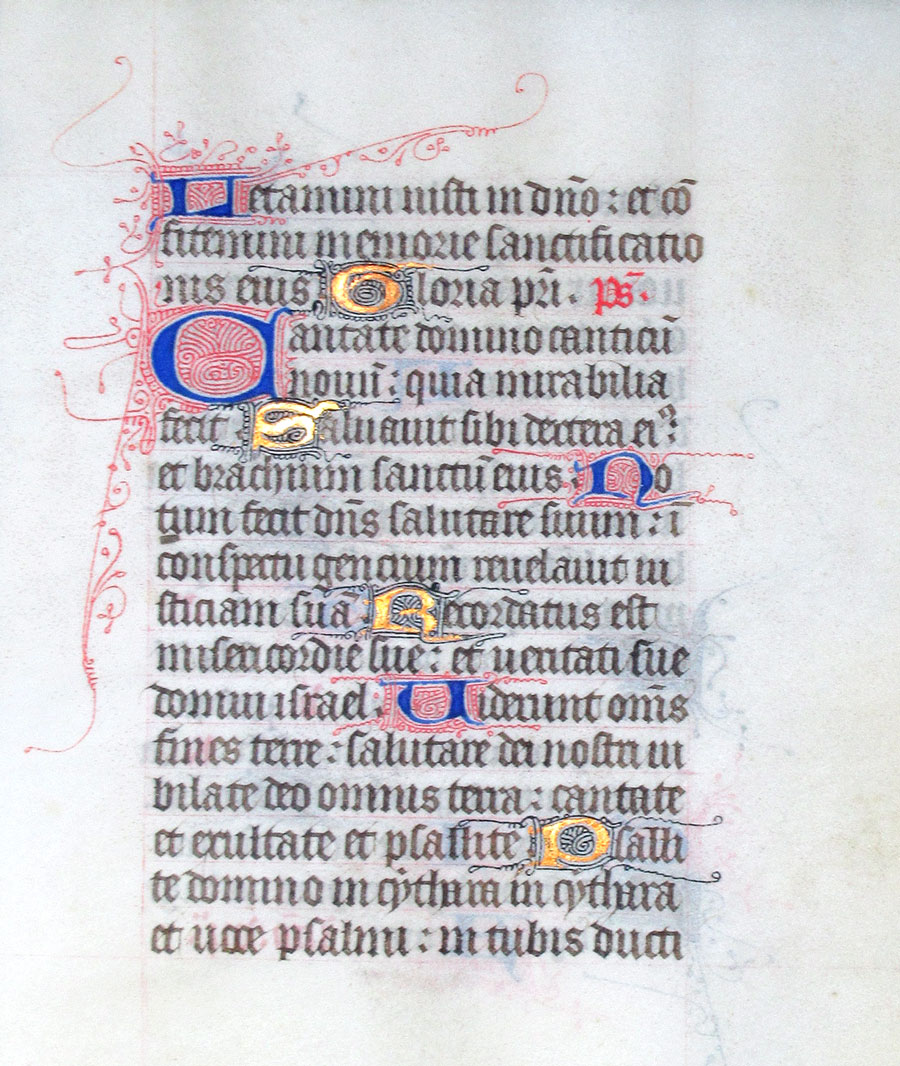 Letamini iusti in dño : et cõ
fitemini memorie sanctificatio
nis eius Gloria pri̅. ps̅.
Cantate domino canticũ
nouũ : quia mirabilia
fecit Saluauit sibi dextera eiꝰ :
et brachium sanctũ eius. No
tum fecit dñs salutare suum : ĩ
conspectu gencium reuelauit iu
sticiam suã Recordatus est
misericordie sue : et ueritati sue
domui israel. Uiderunt om̅s
fines terre : salutare dei nostri iu
bilate deo omnis terra : cantate
et exultate et psallite Psalli
te domino in cythara in cythara
et uoce psalmi : in tubis ducti